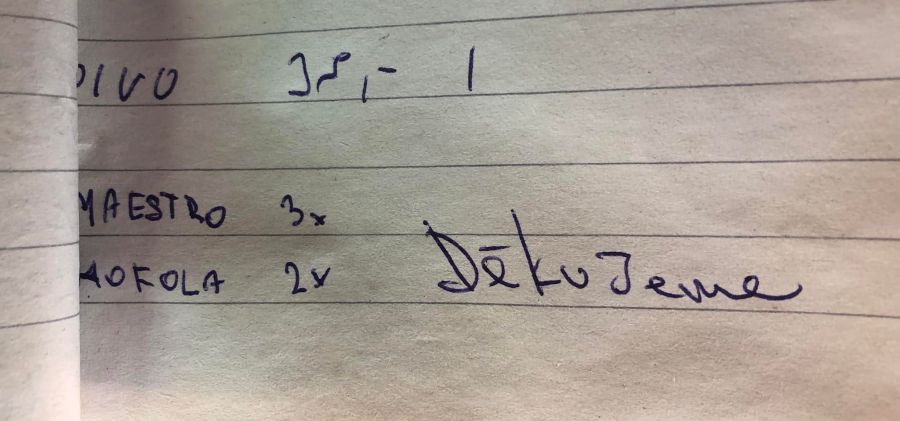 PIVO 1
MAESTRO 3x
KOFOLA 2x
Děkujeme